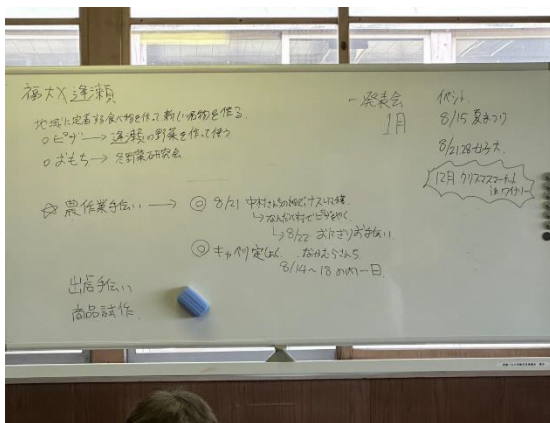 福大×逢瀬
地域に定着する食べ物を作って新しい名物を作る.
○ピザ→逢瀬の野菜を作って使う
○おもち→冬野菜研究会
☆農作業手伝い→◎8/21 中村さんちの畑でナス収穫
→なんだべ村でピザをやく.
→8/22 おにぎりお手伝い
◎キャベツ定しょく. なかむらさんち
8/14～18の内一日.
出店手伝い
商品試作.
発表会
1月
イベント.
8/15 夏まつり
8/21.28
12月 クリスマスマーケット
in ワイナリー